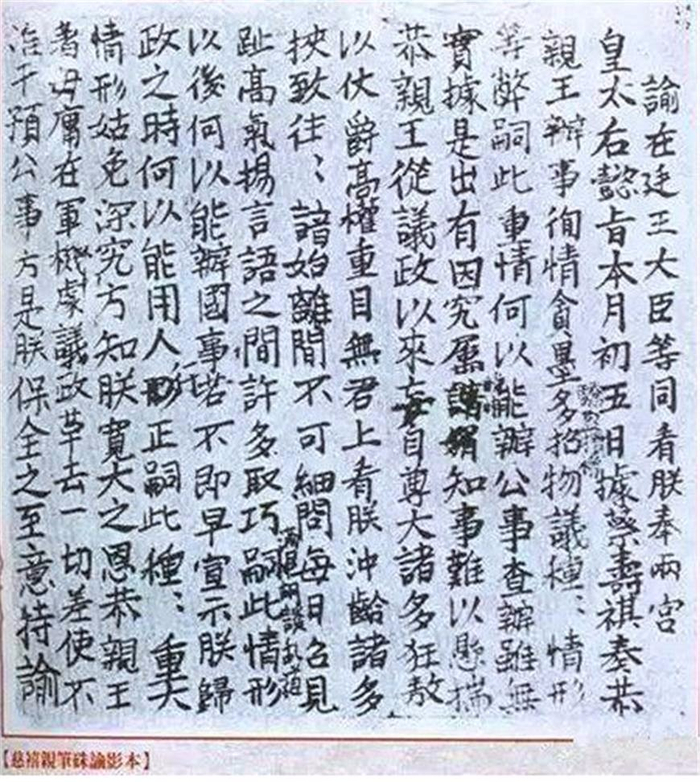 諭在廷王大臣等同看朕奉兩宮
皇太后懿旨本月初五日據蔡壽祺奏恭
親王辦事徇情貪墨多招物議種:情形
等弊嗣此重情何以能辦公事查辦雖無
實據是出有因究屬知事難以懸揣
恭親王從議政以來妄自尊大諸多狂敖
以仗爵高權重目無君上看朕沖齡諸多
挾致往:諳始離間不可細問每日召見
趾高氣揚言語之間許多取巧滿口胡談亂道嗣此情形
以後何以能辦國事若不即早宣示朕歸
政之時何以能用人行正嗣此種:重大
情形姑免深究方知朕寬大之恩恭親王
著毋庸在軍機處議政革去一切差使不
准干預公事方是朕保全之至意特諭
【慈禧親筆硃諭影本】